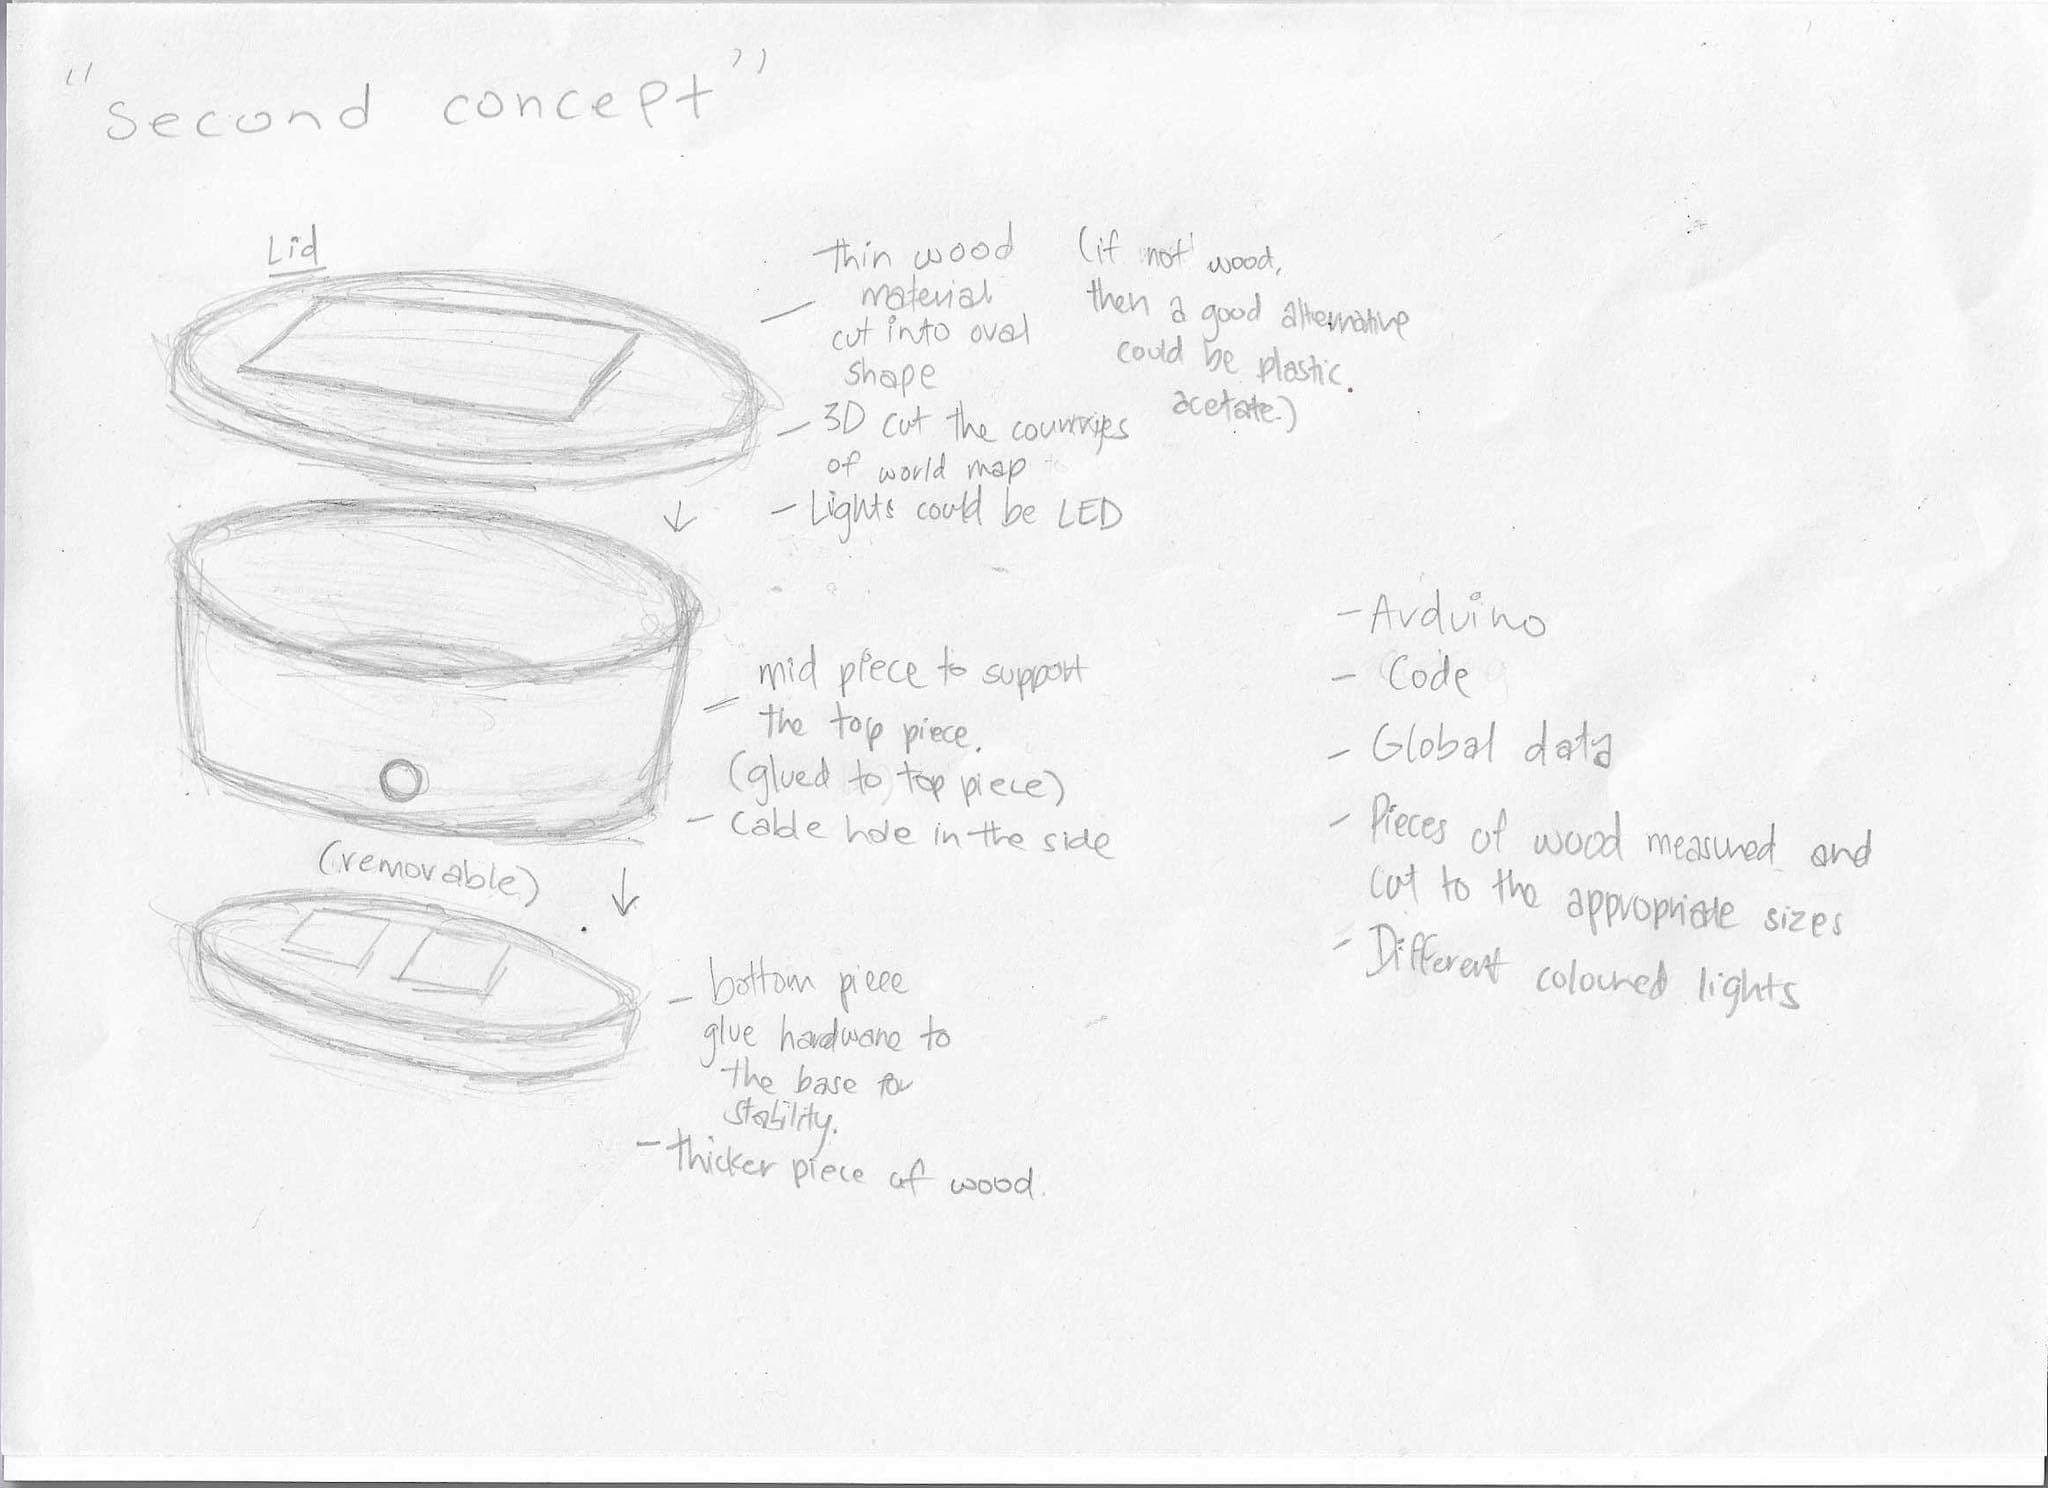 "second concept"
Lid
thin wood
material
cut into oval
shape
(if not wood,
then a good alternative
could be plastic.
acetate.)
- 3D cut the countries
of world map
- Lights could be LED
mid piece to support
the top piece.
(glued to top piece)
- cable hole in the side
(removable)
- bottom piece
glue hardware to
the base for
stability.
- thicker piece of wood.
- Arduino
- Code
- Global data
- Pieces of wood measured and
cut to the appropriate sizes
- Different coloured lights